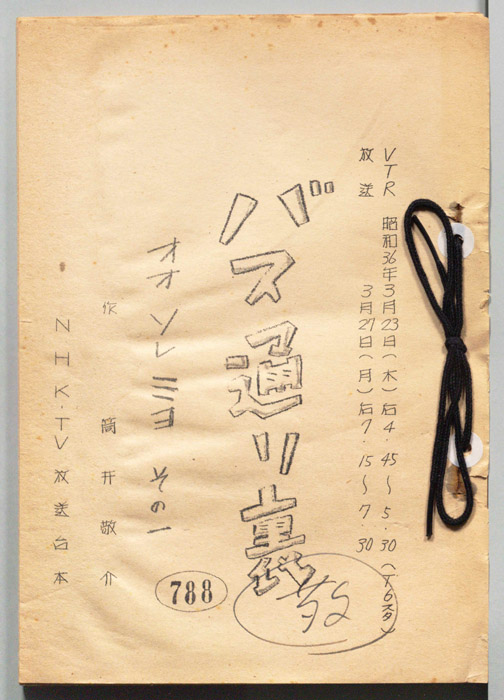 VTR 昭和36年3月23日(木)后4.45~5.30(T6スタ)
放送 3月27日(月)后7.15~7.30
バス通り裏
オオソレミヨ その一
788
作 筒井敬介
NHK・TV放送台本